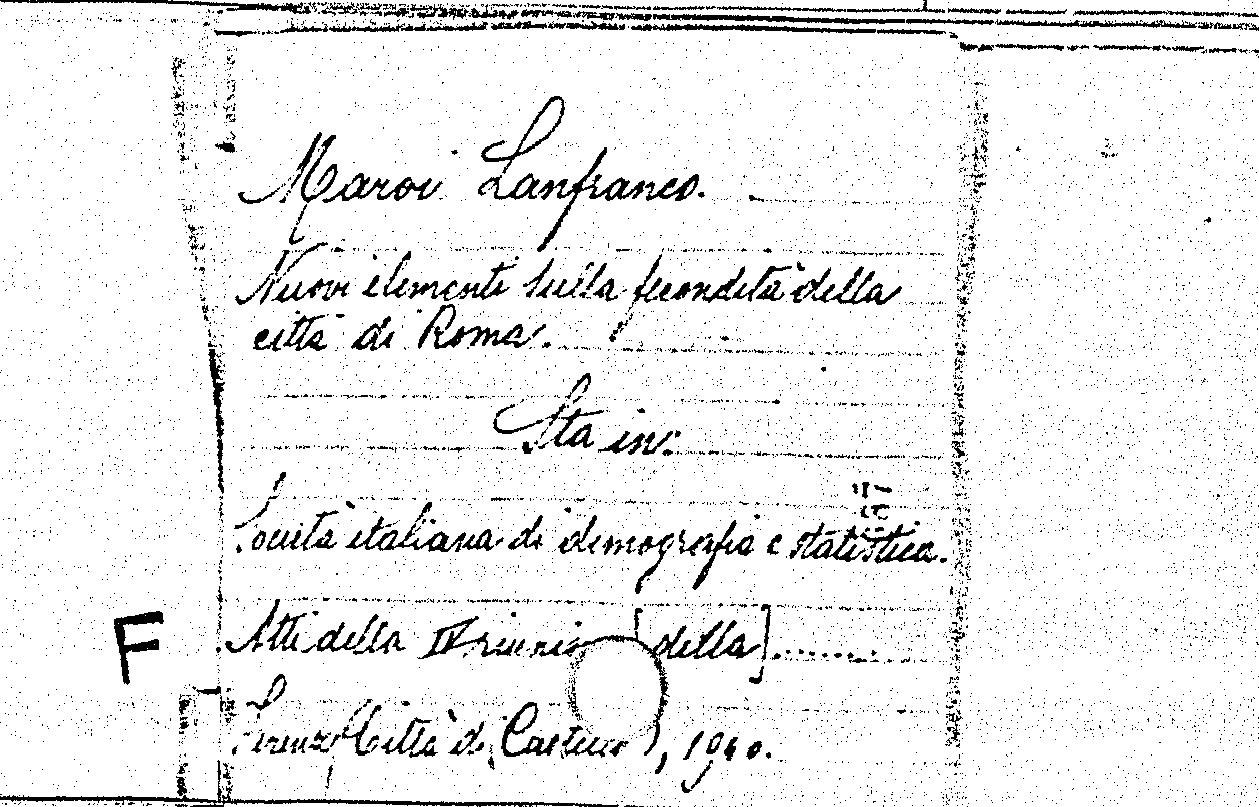 Maroi Lanfranco.
Nuovi elementi sulla fecondità della
città di Roma.
Sta in:
Società italiana di demografia e statistica.
F
Atti della Riunione [della].......
Firenze (Città di Castello), 1940.